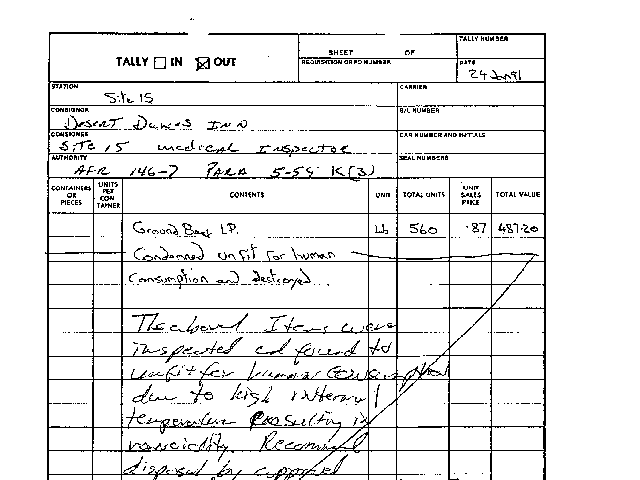 TALLY NUMBER
SHEET OF
TALLY IN OUT
REQUISITION OR PO NUMBER
DATE
24 Jan 91
STATION
Site 15
CARRIER
CONSIGNOR
Desert Dunes INN
B/L NUMBER
CONSIGNEE
Site 15 medical Inspector
CAR NUMBER AND INITIALS
AUTHORITY
AFR 146-7 PARA 5-59 K(3)
SEAL NUMBERS
CONTAINERS OR PIECES
UNITS PER CON TAINER
CONTENTS
UNIT
TOTAL UNITS
UNIT SALES PRICE
TOTAL VALUE
Ground Beef LP. Lb 560 .87 487.20
Condemned unfit for human
Consumption and destroyed.
The above Items were
inspected and found to
unfit for human
due to high internal
temperature resulting in
rancidity. Recommend
disposal by approved